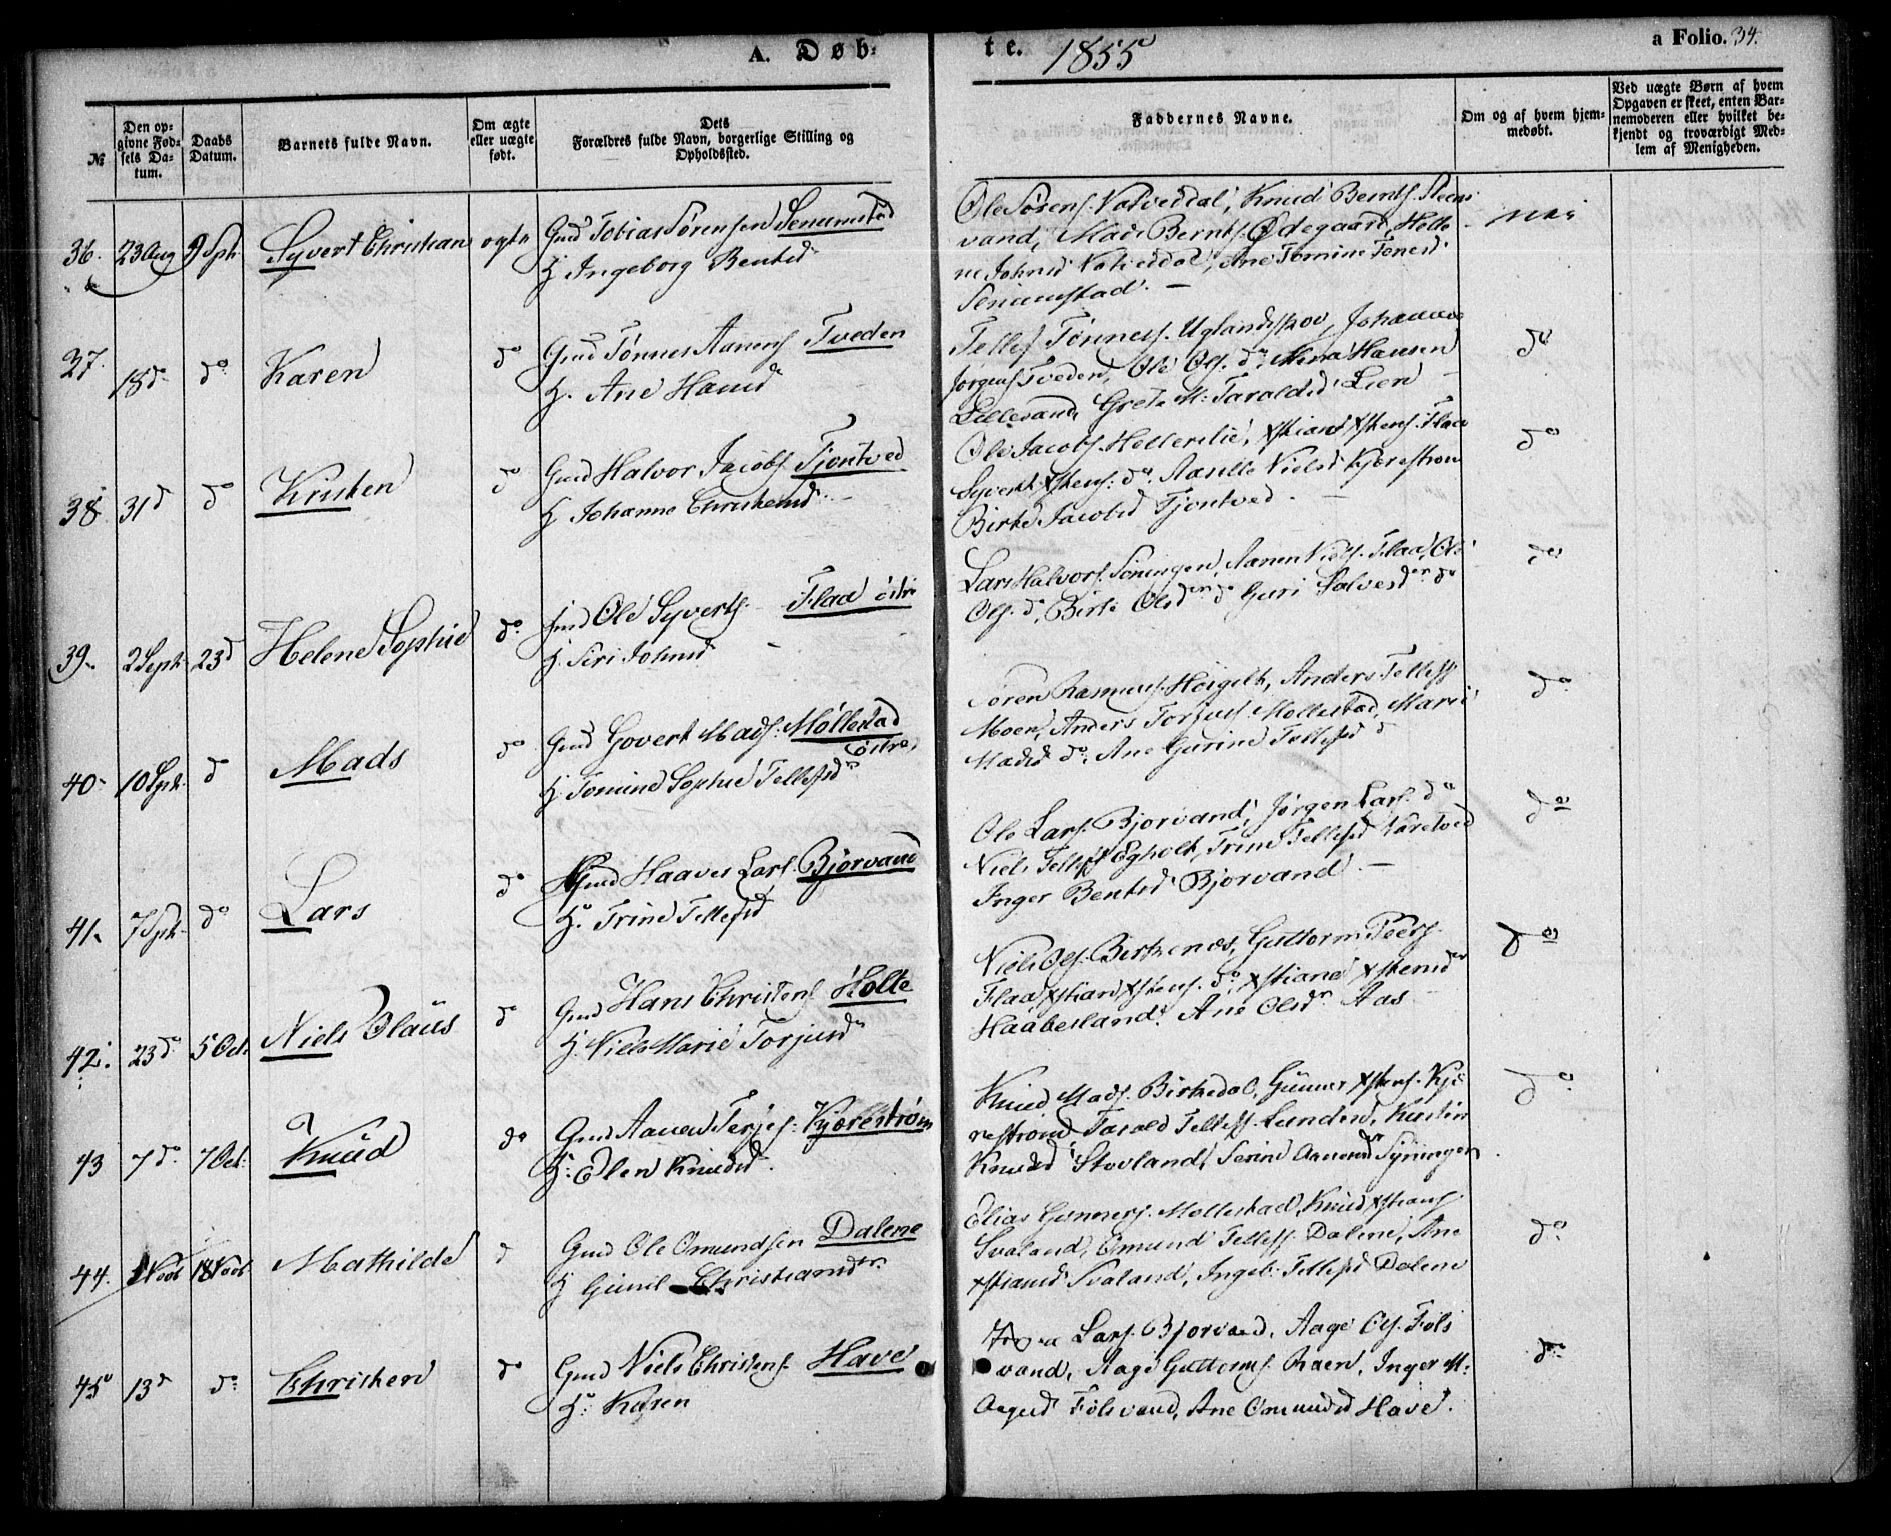 A. Døb-
te. 1855
a Folio. 34.
№
Den op-
givne Fød-
sels Da-
tum.
Daabs
Datum.
Barnets fulde Navn.
Om ægte
eller uægte
født.
Dets
Forældres fulde Navn, borgerlige Stilling og
Opholdssted.
Faddernes Navne.
Om og af hvem hjem-
medøbt.
Ved uægte Børn af hvem
Opgaven er skeet, enten Bar-
nemoderen eller hvilket be-
kjendt og troværdigt Med-
lem af Menigheden.
36. 23 Aug 9 Sptr. Syvert Christian ægte Gmd Tobias Sørensen Senumstad
H Ingeborg Bentsd
Ole Sørens. Natveddal, Knud Bernts. Steens
vand, Mads Bernts. Ødegaard, Helle
ne Johnsd Natveddal, Ane Tomine Tønesd
Senumstad. —
nei
37. 18 do do Karen do Gmd Tønnes Aanens. Tveden
H. Ane Hansd
Tellef Tønnes. Uglandsskov, Johannes
Jørgens Tveden, Ole Ols. do, Mina Hansen
Lillesand, Grete M. Taraldsd Lien
do
38 31 d do Kristen do Gmd Halvor Jacobs. Tjøntved
H Johanne Christensd
Ole Jacobs. Hellerslie, Xstians Xstens. Flaa
Syvert Xstens. do, Aasille Nielsd Kjørestrøm
Birte Jacobsd Tjøntved. —
do
39. 2 Septr 23 d Helene Sophie do Gmd Ole Syverts. Flaa östre
H. Siri Johnsd
Lars Halvors. Søningen, Aanen Niels. Flaa, Ole
Ols. do, Birte Olsd do Guri Salvesd do
do
40. 10 Sptr. d Mads do Gmd Govert Mads. Møllestad
östre
H Tomine Sophie Tellefsd
Søren Rasmus. Høigilt, Anders Tellefs
Moen, Anders Torjus. Møllestad, Marie
Madsd do, Ane Gurine Tellefsd d
do
41. 7 Sptr. do Lars do Gmd Haaver Lars. Bjorvand
H. Trine Tellefsd
Ole Lars. Bjorvand, Jørgen Lars. do
Niels Tellefs Egholt, Trine Tellefsd Karetved
Inger Bentsd Bjorvand. —
do
42. 23 do 5 Oct. Niels Olaüs do Gmd Hans Christens Holte
H. Niels Marie Torjusd
Niels Ols. Birkenes, Guttorm Peers.
Flaa, Xstian Xstens. do, Xstiane Xstensd
Haabesland, Ane Olsdr Aas
do
43 7 do. 7 Oct. Knüd do Gmd Aanen Terjes. Kjørestrøm
H. Elen Knudsd.
Knud Mads. Birkedal, Günner Xstens. Kjø
restrøm, Tarald Tellefs. Lunden, Kirstin
Knudsd Stovland, Serine Aanensd Syningen.
do
44. 1 Novb 18 Novb Mathilde d Gmd Ole Omundsen Dalene
H Gunil Christiansdr.
Elias Gunners. Møllestad, Knüd Xstians
Svaland, Omund Tellefs. Dalene, Ane
Xstiansd Svaland, Ingeb. Tellefsd Dalene
do
45 13 d do Christen do Gmd Niels Christens. Have
H. Karen
Lars. Bjorvand, Aage Ols. Føls
vand, Aage Guttorms. Raen, Inger M.
Aagesd Følsvand, Ane Omundsd Have.
do